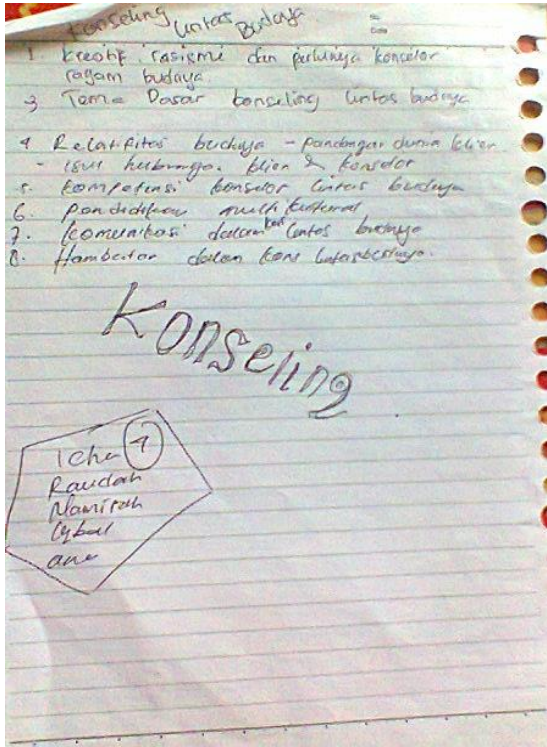 Konseling Lintas Budaya
No
Date
1. Kreotif rasisme dan perlunya konselor
ragam budaya
3 Tema Dasar konseling lintas budaya
4 Relatifitas budaya - pandangan dunia klien
- isu hubungan klien & konselor
5. Kompetensi konselor lintas budaya
6. pendidikan multikultural
7. Komunikasi dalam kons lintas budaya
8. Hambatan dalam kons lintas budaya.
Konseling
Icha 4
Raudah
Namirah
Iqbal
ana